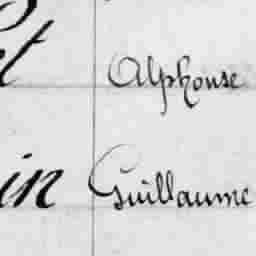 t Alphonse
in Guillaume